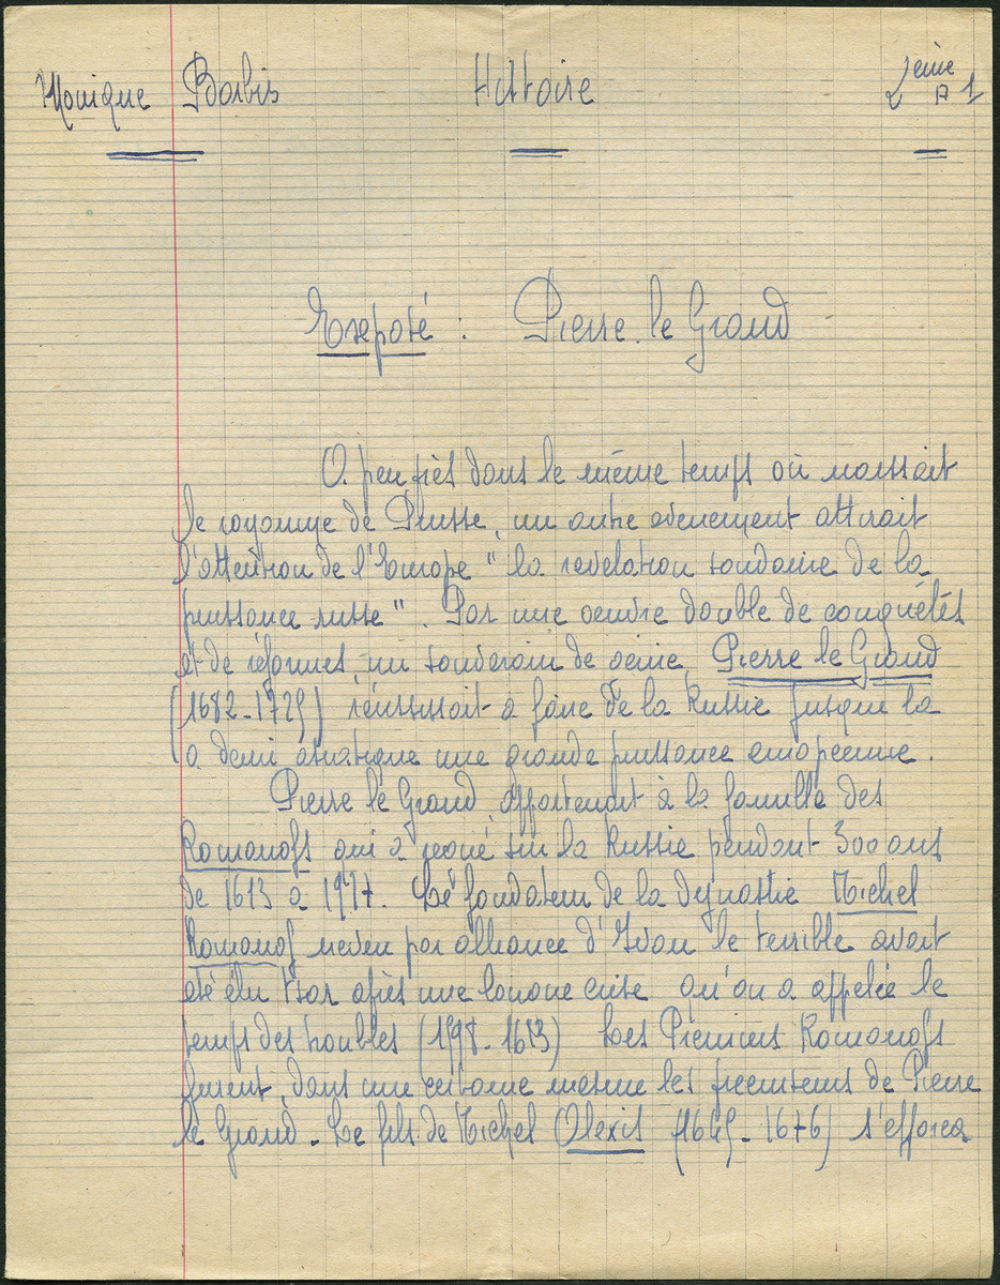 Monique Barbis Histoire 2ème A 1
Exposé : Pierre le Grand
A peu près dans le même temps où naissait
le royaume de Prusse, un autre évenement attirait
l'attention de l'Europe "la revelation soudaine de la
puissance russe". Par une oeuvre double de conquêtes
et de réformes, un souverain de génie, Pierre le Grand
(1682-1725) réussissait à faire de la Russie jusque là
à demi asiatique une grande puissance européenne.
Pierre le Grand appartenait à la famille des
Romanofs qui a regné sur la Russie pendant 300 ans
de 1613 à 1917. Le fondateur de la dynastie Michel
Romanof neveu par alliance d'Ivan le terrible avait
été élu tsar après une longue crise qu'on a appelée le
temps des troubles (1598-1613) Les Premiers Romanofs
furent, dans une certaine mesure les precurseurs de Pierre
le Grand. Le fils de Michel Alexis (1645-1676) s'efforça